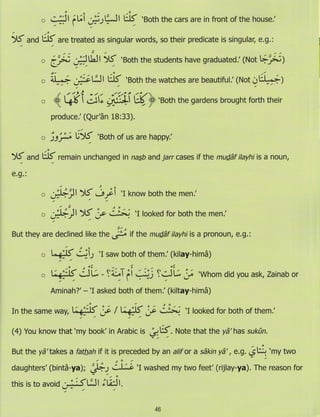 o كِلْتَا السَّيَّارَتَيْنِ أَمَامَ الْبَيْتِ 'Both the cars are in front of the house.'
كِلَا and كِلْتَا are treated as singular words, so their predicate is singular, e.g.:
o كِلَا الطَّالِبَيْنِ تَخَرَّجَ 'Both the students have graduated.' (Not تَخَرَّجَا)
o كِلْتَا السَّاعَتَيْنِ جَمِيلَةٌ 'Both the watches are beautiful.' (Not جَمِيلَتَانِ)
o ﴿كِلْتَا الْجَنَّتَيْنِ آتَتْ أُكُلَهَا﴾ 'Both the gardens brought forth their
produce.' (Qur'ān 18:33).
o كِلَانَا مَسْرُورٌ 'Both of us are happy.'
كِلَا and كِلْتَا remain unchanged in naṣb and jarr cases if the muḍāf ilayhi is a noun,
e.g.:
o أَعْرِفُ كِلَا الرَّجُلَيْنِ 'I know both the men.'
o بَحَثْتُ عَنْ كِلَا الرَّجُلَيْنِ 'I looked for both the men.'
But they are declined like the مُثَنَّى if the muḍāf ilayhi is a pronoun, e.g.:
o رَأَيْتُ كِلَيْهِمَا 'I saw both of them.' (kilay-himā)
o مَنْ سَأَلْتِ؟ زَيْنَبَ أَمْ آمِنَةَ؟ - سَأَلْتُ كِلْتَيْهِمَا 'Whom did you ask, Zainab or
Aminah?' – 'I asked both of them.' (kiltay-himā)
In the same way, بَحَثْتُ عَنْ كِلَيْهِمَا / عَنْ كِلْتَيْهِمَا 'I looked for both of them.'
(4) You know that 'my book' in Arabic is كِتَابِيْ. Note that the yā' has sukūn.
But the yā' takes a fatḥah if it is preceded by an alif or a sākin yā' , e.g. بِنْتَايَ 'my two
daughters' (bintā-ya); غَسَلْتُ رِجْلَيَّ 'I washed my two feet' (rijlay-ya). The reason for
this is to avoid الْتِقَاءُ السَّاكِنَيْنِ.
46